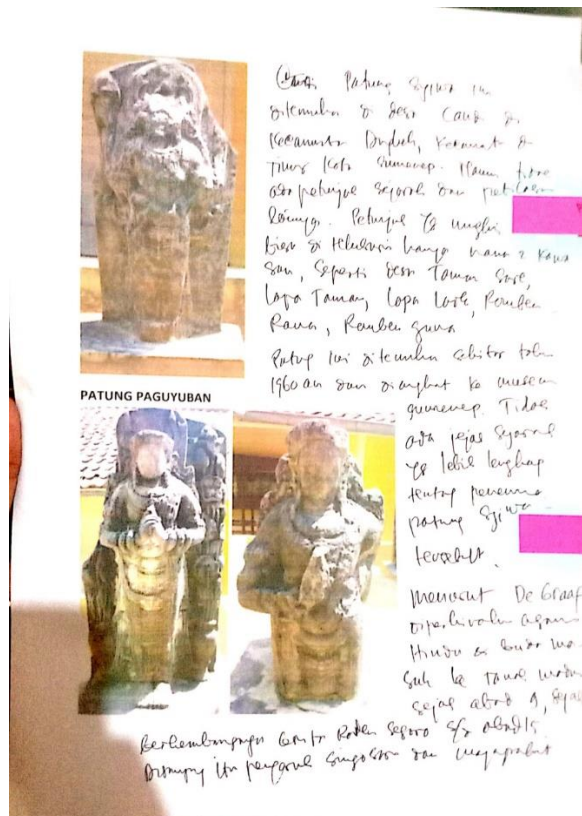 Patung Syiwa ini
ditemukan di desa Candi di
Kecamatan Dungkek, Kecamatan di
timur kota Sumenep. Namun tidak
ada petunjuk sejarah dan petilasan
lainnya. Petunjuk yg mungkin
bisa di telusuri hanya nama2 kawa
san, seperti desa Taman Sare,
Lapa Taman, Lapa Laok, Romben
Rana, Romben guna
Patung ini ditemukan sekitar tahun
1960 an dan diangkat ke museum
PATUNG PAGUYUBAN
sumenep. Tidak
ada jejas sejarah
yg lebih lengkap
tentang penemua
patung Syiwa
tersebut.
Menurut De Graaf
diperkirakan agama
Hindu di
suk ke tanah madu
sejak abad 9, sejak
Berkembangnya cerita Raden Segoro s/d abad 15
Disamping itu pengaruh Singosari dan majapahit